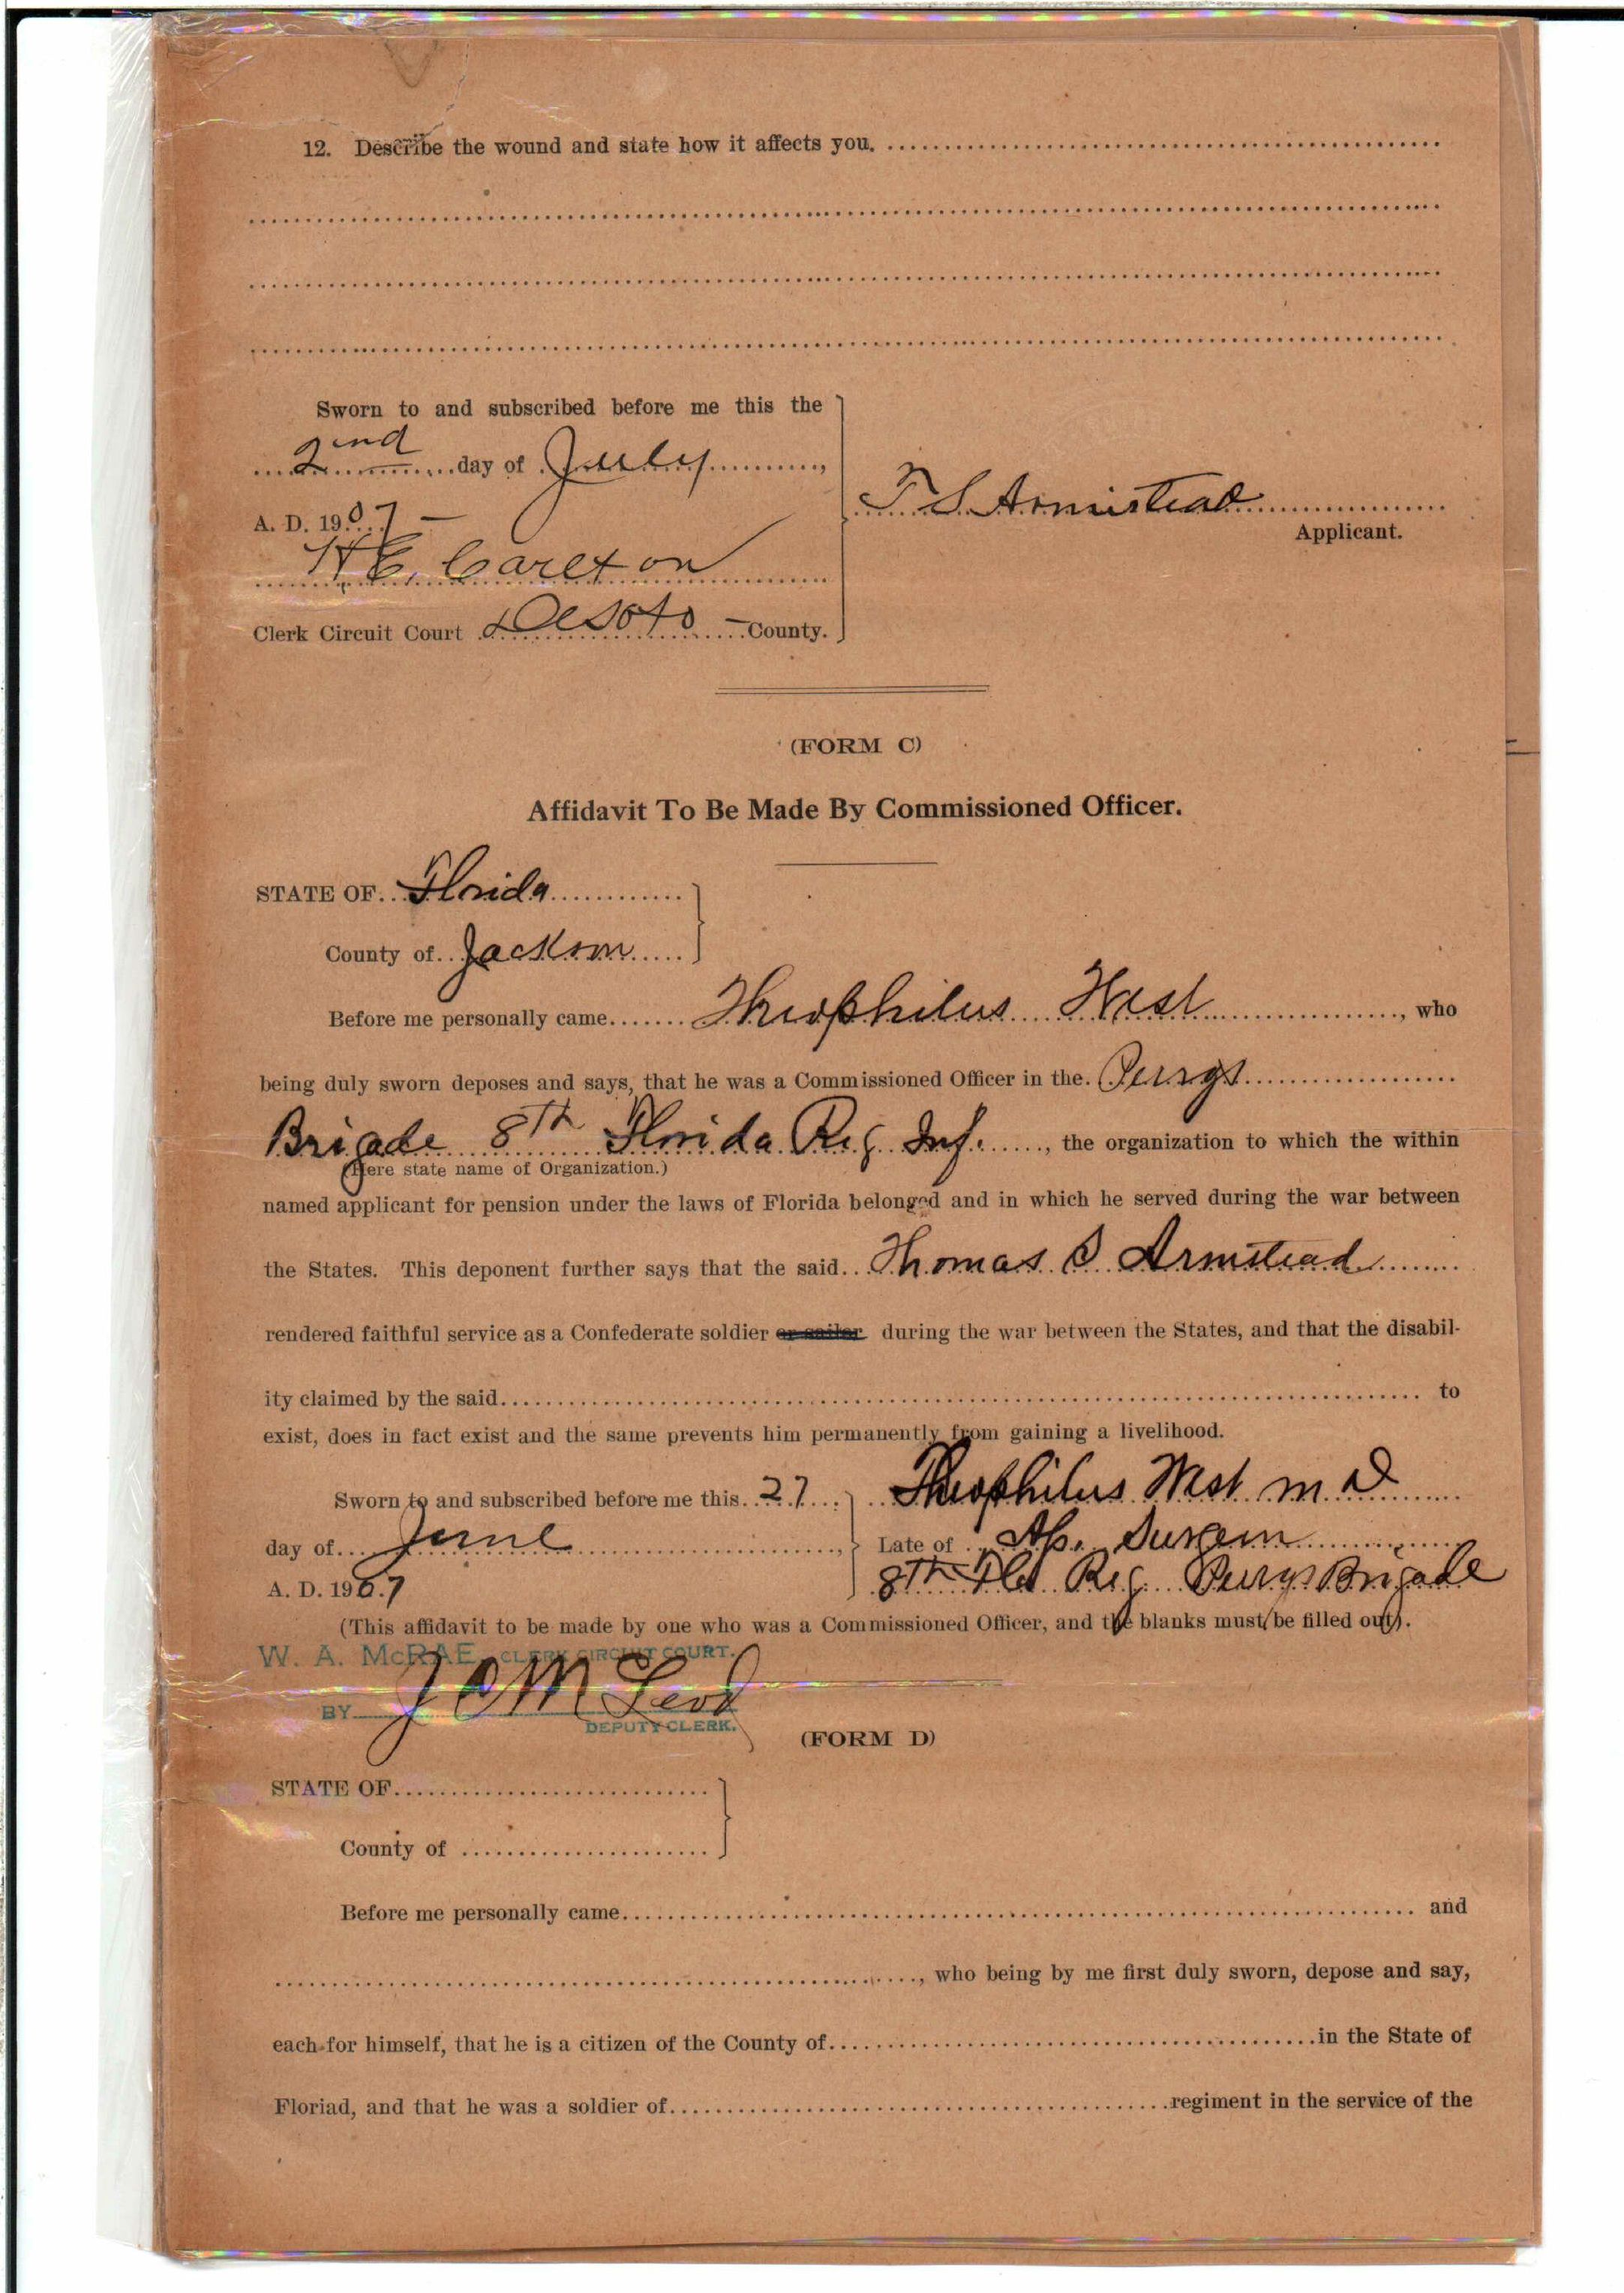 12. Describe the wound and state how it affects you.
Sworn to and subscribed before me this the
2nd day of July,
A. D. 1907 –
H E. Carlton
Clerk Circuit Court DeSoto – County.
T S Armistead
Applicant.
(FORM C)
Affidavit To Be Made By Commissioned Officer.
STATE OF Florida
County of Jackson
Before me personally came Theophilus West, who
being duly sworn deposes and says, that he was a Commissioned Officer in the Perrys
Brigade 8th Florida Reg Inf., the organization to which the within
(Here state name of Organization.)
named applicant for pension under the laws of Florida belonged and in which he served during the war between
the States. This deponent further says that the said Thomas S Armstead
rendered faithful service as a Confederate soldier or sailor during the war between the States, and that the disabil-
ity claimed by the said to
exist, does in fact exist and the same prevents him permanently from gaining a livelihood.
Sworn to and subscribed before me this 27
day of June,
A. D. 1907
Theophilus West M. D
Late of As. Surgeon
8th Fla Reg Perrys Brigade
(This affidavit to be made by one who was a Commissioned Officer, and the blanks must be filled out).
W. A. McRAE, CLERK CIRCUIT COURT.
BY J C McLeod
DEPUTY CLERK.
(FORM D)
STATE OF
County of
Before me personally came and
, who being by me first duly sworn, depose and say,
each for himself, that he is a citizen of the County of in the State of
Floriad, and that he was a soldier of regiment in the service of the